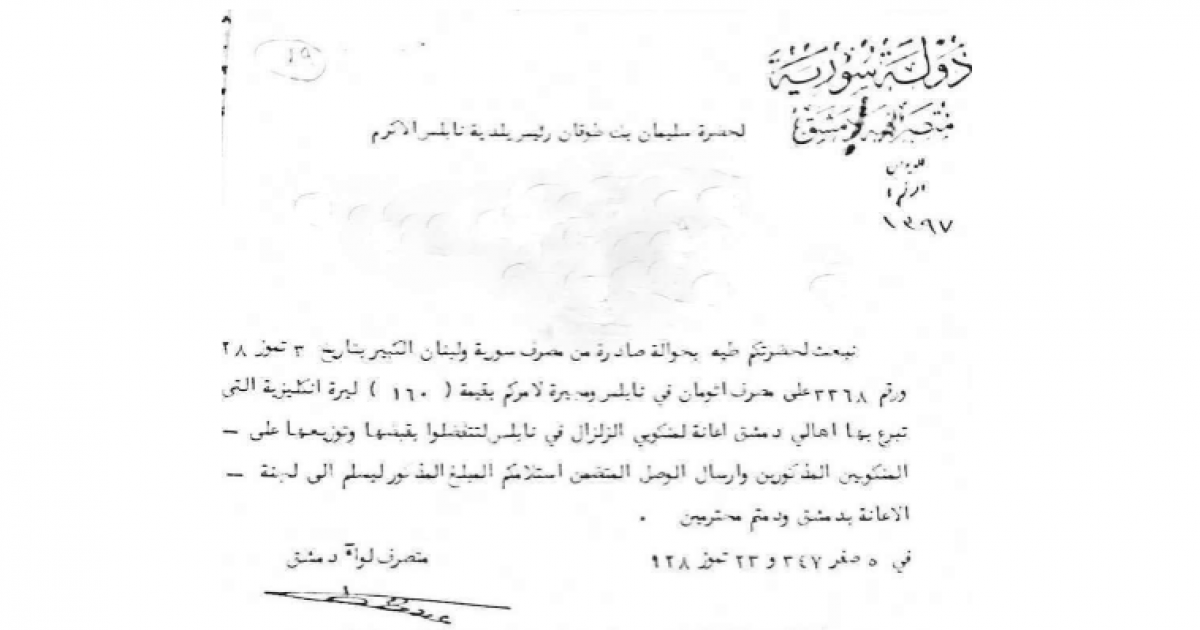 دَوْلَةُ سُوْرِيَّة
متصرفية لواء دمشق
١٥
لحضرة سليمان بك طوقان رئيس بلدية نابلس الاكرم
الديوان
الرقم
١٣٩٧
نبعث لحضرتكم طيه بحوالة صادرة من مصرف سورية ولبنان الكبير بتاريخ ٣ تموز ٢٨
ورقم ٣٣٦٨ على مصرف اتومان في نابلس ومجيرة لامركم بقيمة ( ١٦٠ ) ليرة انكليزية التي
تبرع بها اهالي دمشق اعانة لمنكوبي الزلزال في نابلس لتتفضلوا بقبضها وتوزيعها على –
المنكوبين المذكورين وارسال الوصل المتضمن استلامكم المبلغ المذكور ليسلم الى لجنة –
الاعانة بدمشق ودمتم محترمين .
في ٥ صفر ٣٤٧ و ٢٣ تموز ٩٢٨
متصرف لواء دمشق